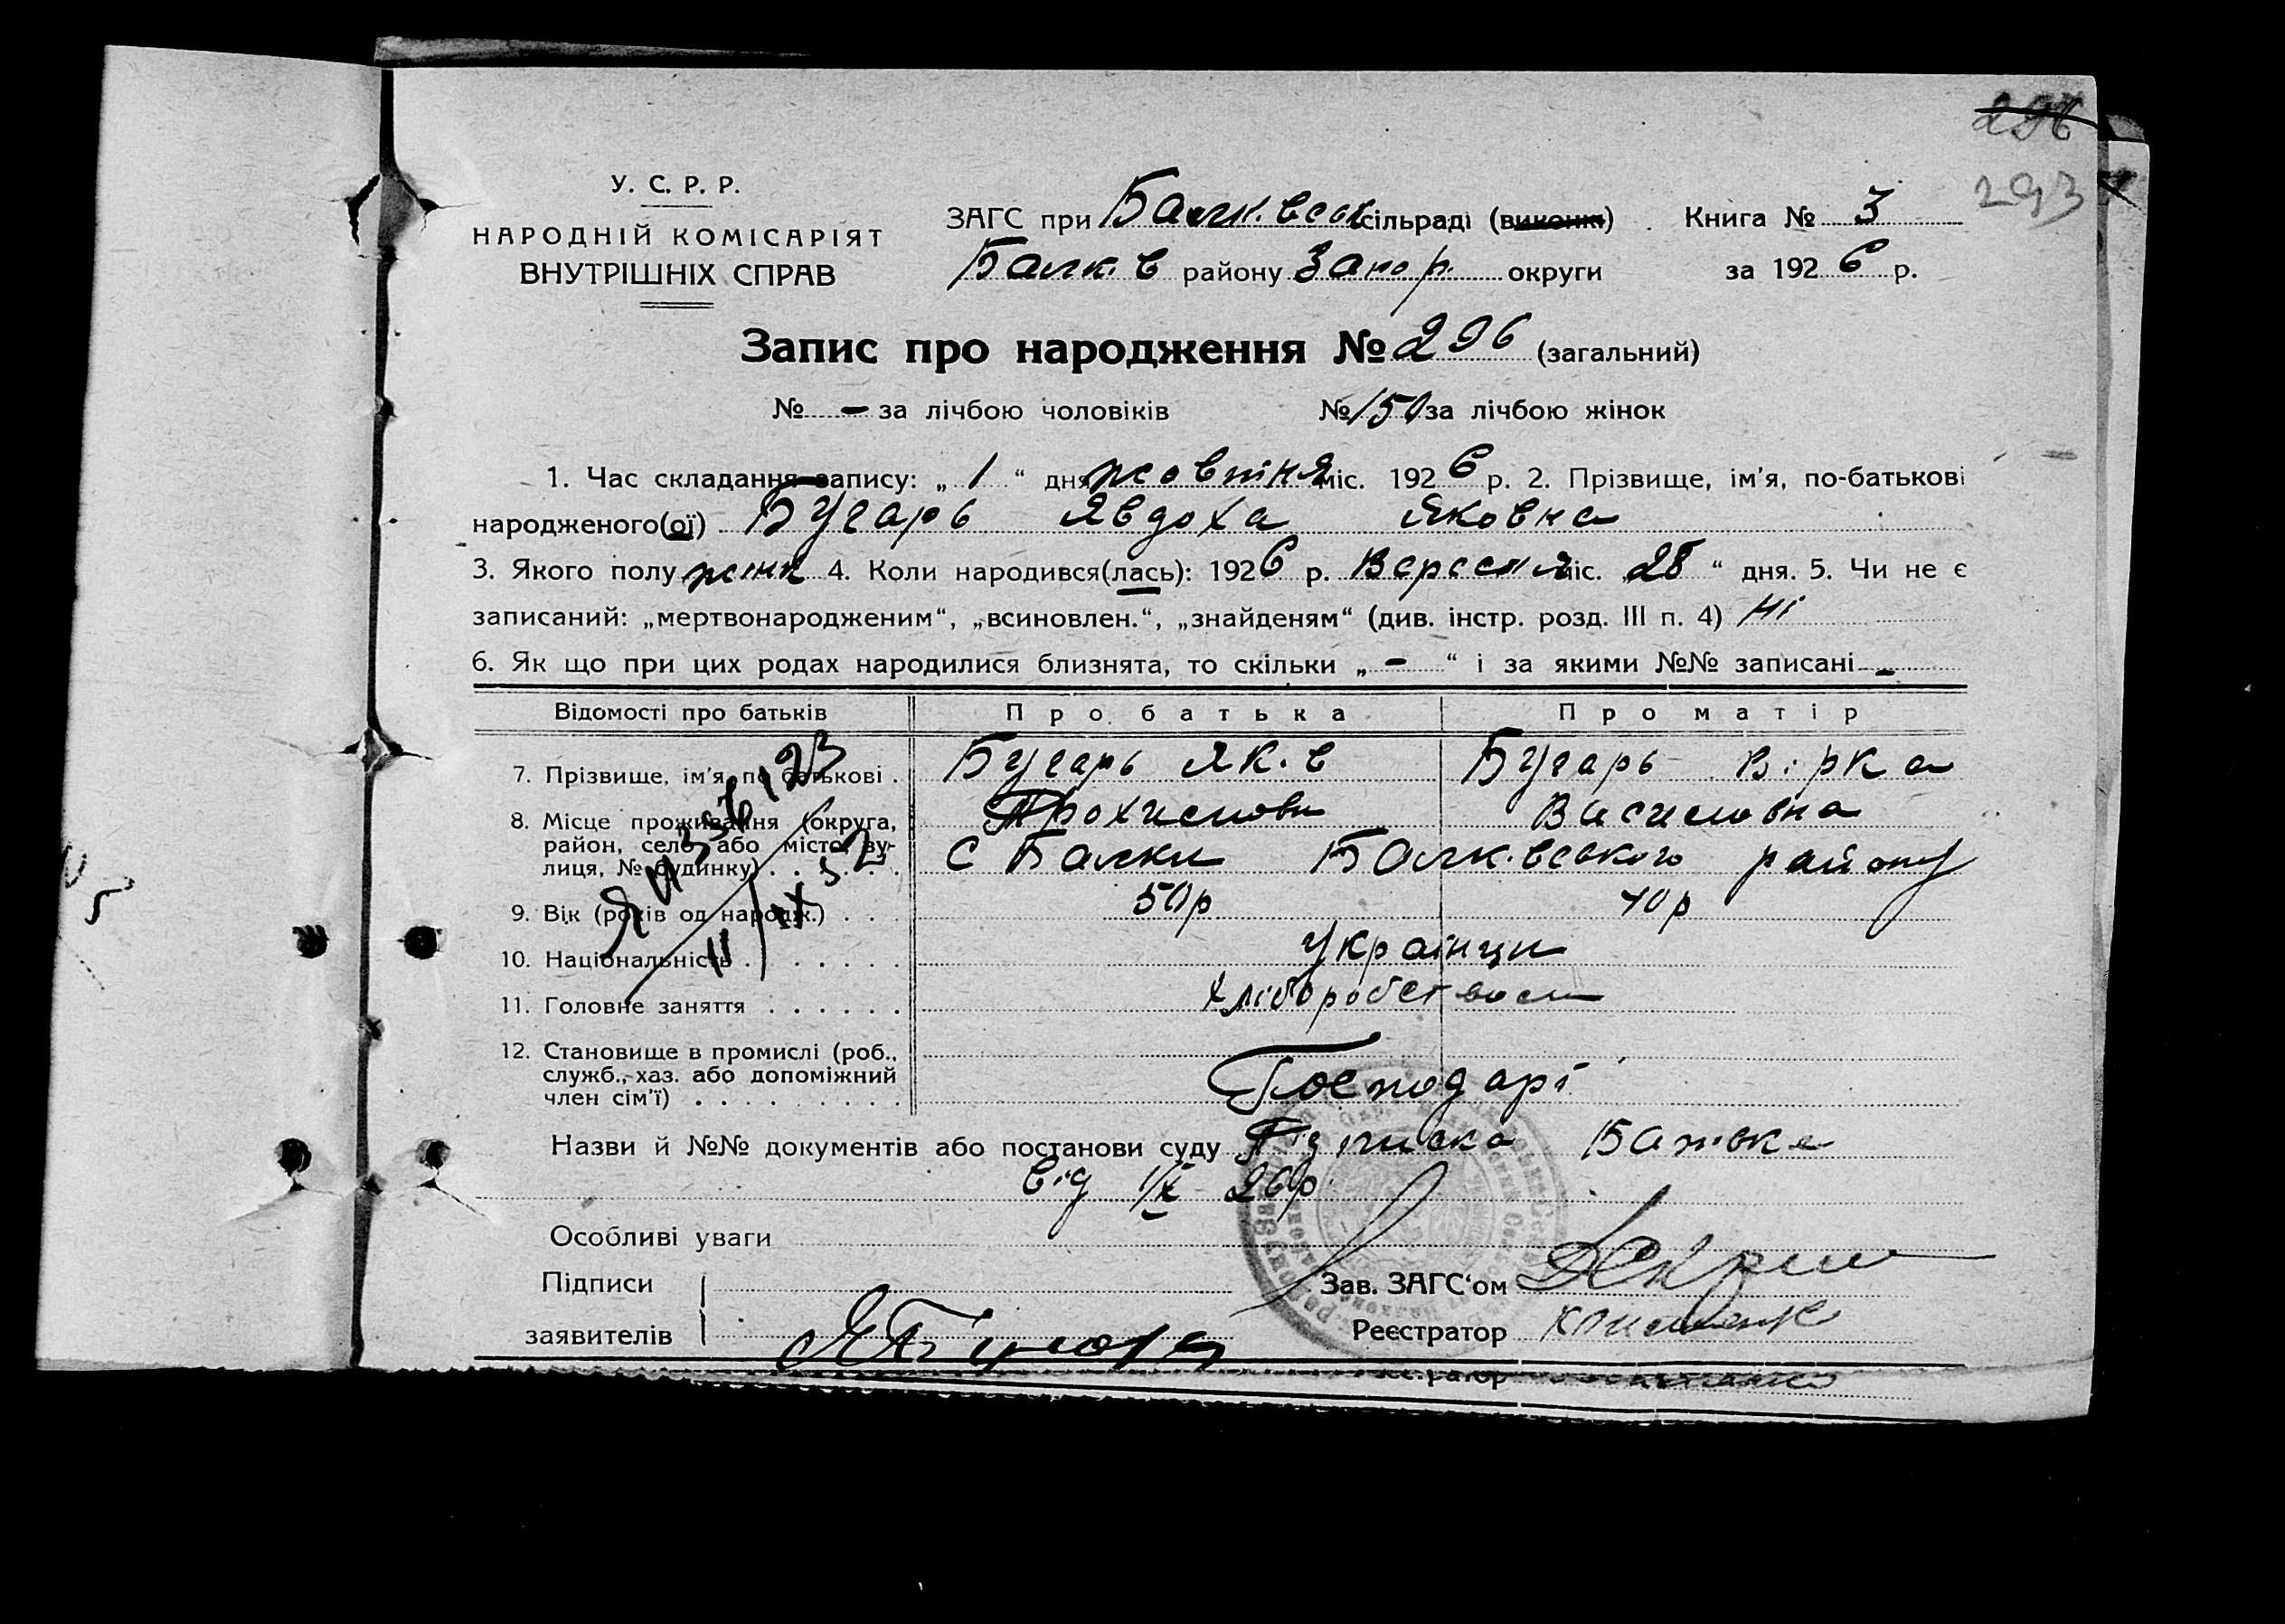 296
293
У. С. Р. Р.
НАРОДНІЙ КОМІСАРІЯТ
ВНУТРІШНІХ СПРАВ
ЗАГС при Балківськ сільраді (виконк) Книга № 3
Балків району Запор. округи за 1926 р.
Запис про народження № 296 (загальний)
№ - за лічбою чоловіків № 150 за лічбою жінок
1. Час складання запису: „ 1 “ дня жовтня міс. 1926 р. 2. Прізвище, ім'я, по-батькові
народженого(ої) Бугарь Явдоха Яковна
3. Якого полу жінк 4. Коли народився(лась): 1926 р. Вересня міс. „28“ дня. 5. Чи не є
записаний: „мертвонародженим“, „всиновлен.“, „знайденям“ (див. інстр. розд. III п. 4) Ні
6. Як що при цих родах народилися близнята, то скільки „ - “ і за якими №№ записані -
Відомості про батьків Про батька Про матір
7. Прізвище, ім'я, по батькові . Бугарь Яків Бугарь Вірка
Трохимови Василовна
8. Місце проживання (округа,
район, село або місто, ву-
лиця, № будинку) . . . . . . с Балки Балківського району
9. Вік (років од народж.) . . . 50р 40р
10. Національність . . . . . . . Українци
11. Головне заняття . . . . . . Хліборобством
12. Становище в промислі (роб.,
служб., хаз. або допоміжний
член сім'ї) . . . . . . . . . Господарі
Назви й №№ документів або постанови суду Підписка Батька
від 1/X 26р.
Особливі уваги
Підписи
заявителів
Зав. ЗАГС'ом
Реєстратор